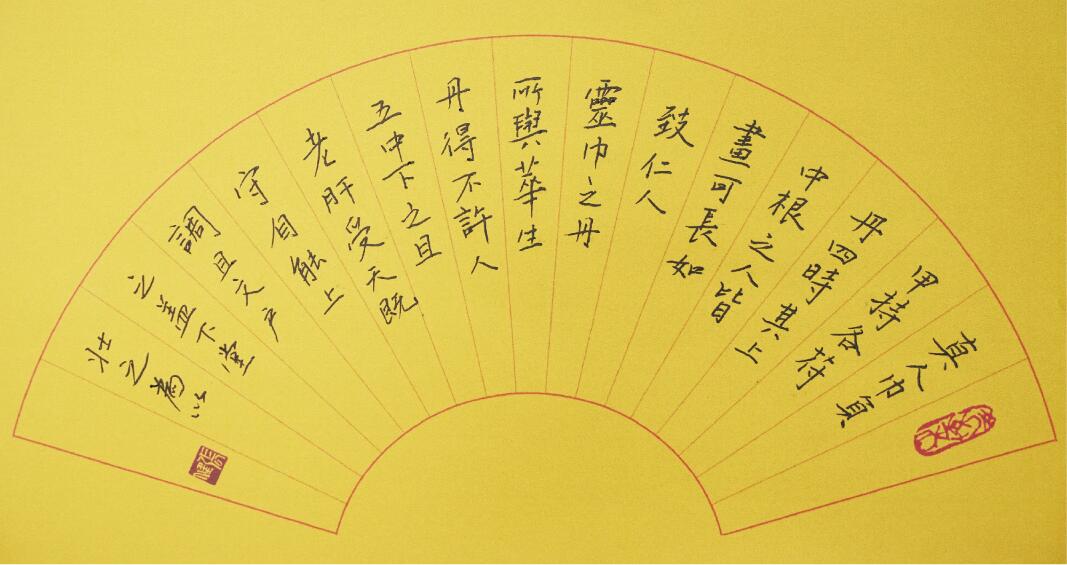 真人巾負
甲持各符
丹四時其上
中根之人皆
畫可長如
致仁人
靈巾之丹
所與華生
丹得不許人
五中下之且
老肝受天既
守自能上
調且文户
之益下堂
壮之為以